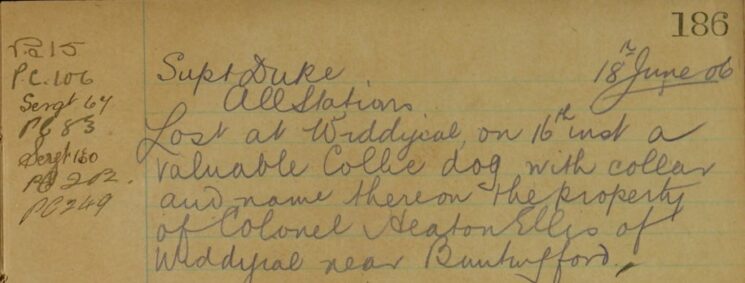 186
P.C 15
P.C. 106
Sergt 64
PC 83
Sergt 130
PC 202.
PC 249
Supt Duke 18th June 06
All Stations
Lost at Widdyial, on 16th inst a
valuable Collie dog with collar
and name thereon the property
of Colonel Heaton Ellis of
Widdyial near Buntingford.